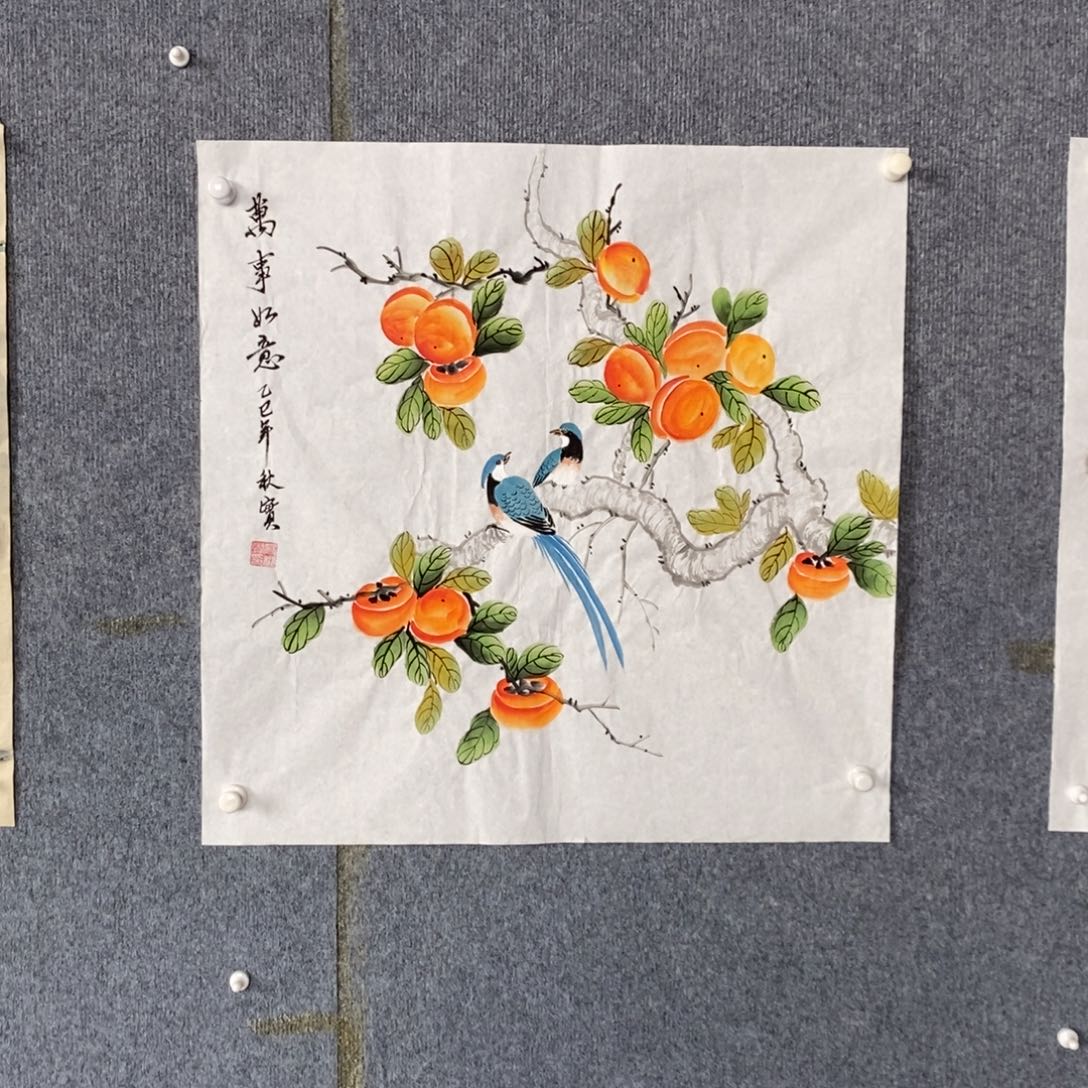 萬事如意乙巳年秋寶